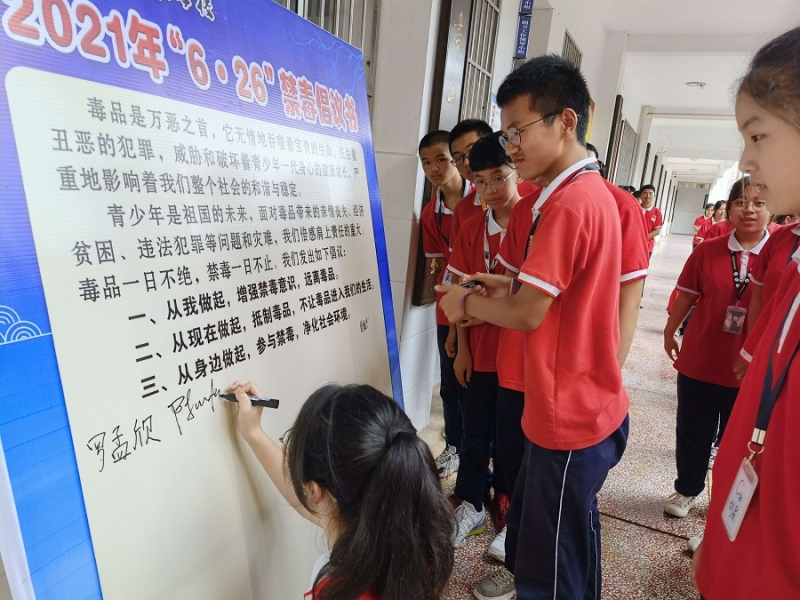 2021年“6·26”禁毒倡议书
毒品是万恶之首，它无情地吞噬着宝贵的生命，滋生着
丑恶的犯罪，威胁和破坏着青少年一代身心的健康成长，严
重地影响着我们整个社会的和谐与稳定。
青少年是祖国的未来，面对毒品带来的亲情丧失、经济
贫困、违法犯罪等问题和灾难，我们倍感肩上责任的重大，
毒品一日不绝，禁毒一日不止。我们发出如下倡议：
一、从我做起，增强禁毒意识，远离毒品。
二、从现在做起，抵制毒品，不让毒品进入我们的生活。
三、从身边做起，参与禁毒，净化社会环境。
罗孟欣